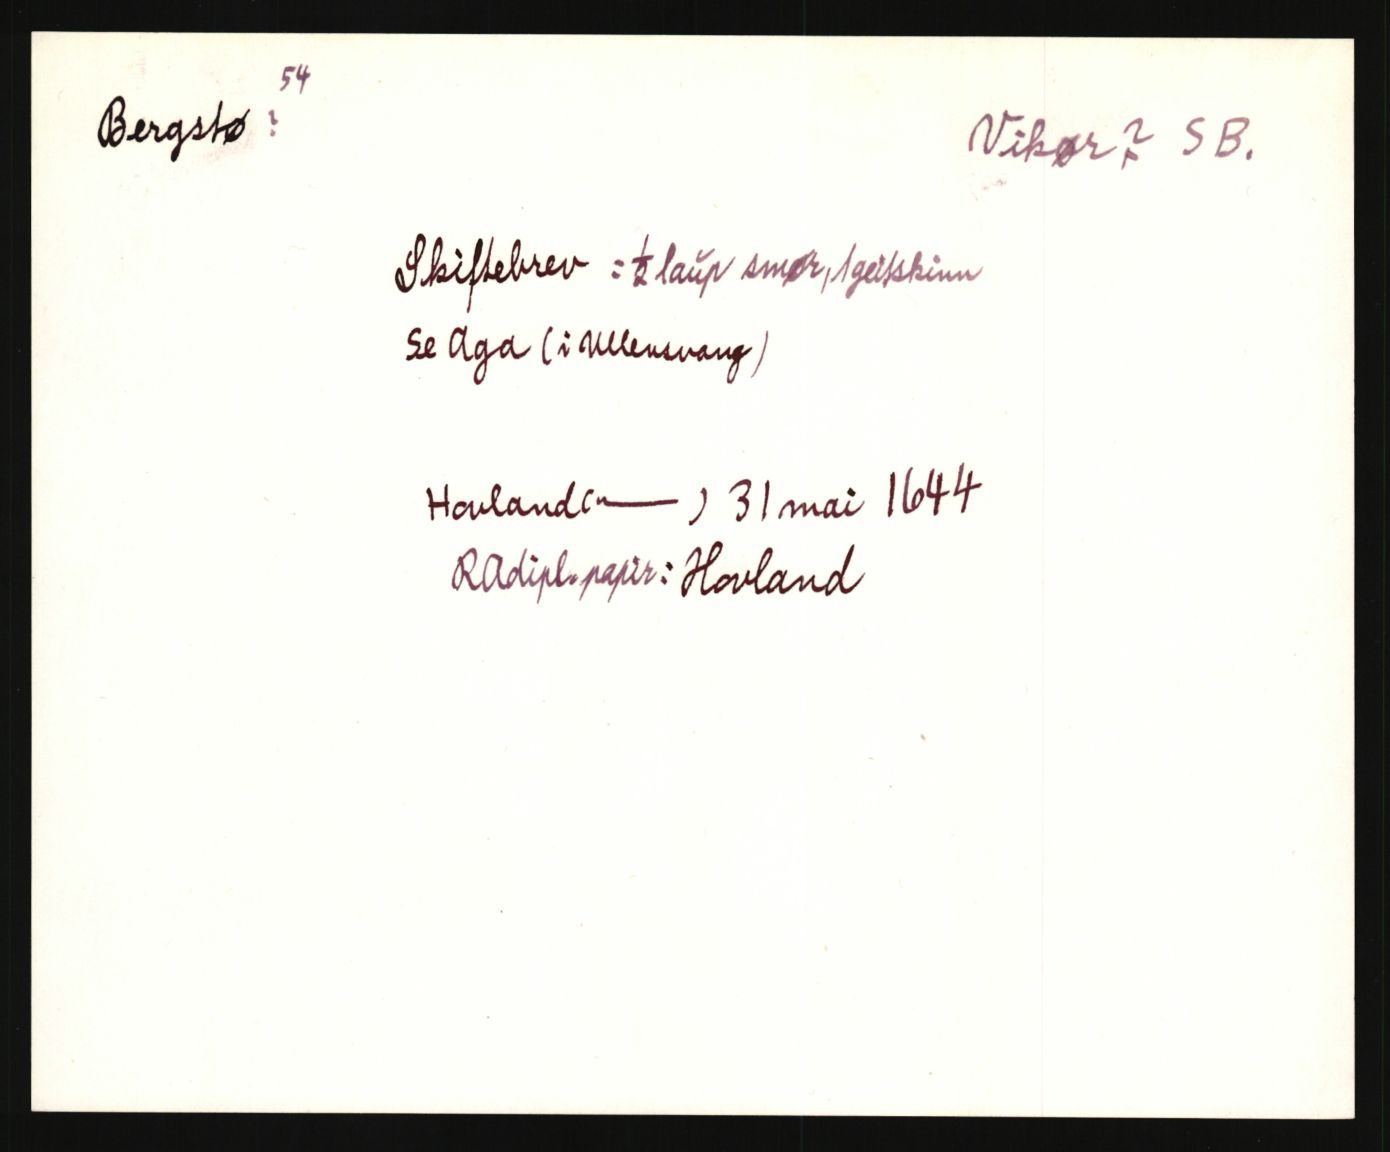 54
Bergstø ?
Vikør? SB.
Skiftebrev : ½ laup smør, 1 geitskinn
Se Aga (i Ullensvang)
Hovland (" —— ) 31 mai 1644
RA dipl. papir : Hovland